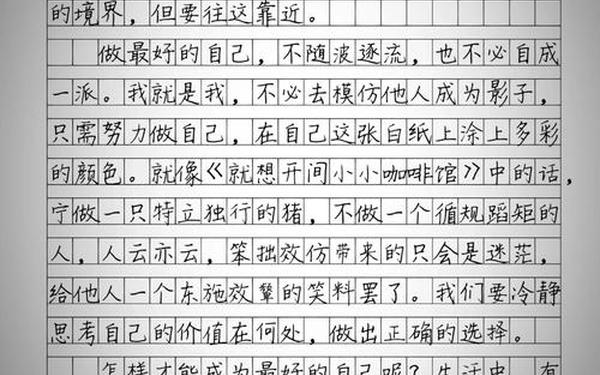 的境界，但要往这靠近。
做最好的自己，不随波逐流，也不必自成
一派。我就是我，不必去模仿他人成为影子，
只需努力做自己，在自己这张白纸上涂上多彩
的颜色。就像《就想开间小小咖啡馆》中的话，
宁做一只特立独行的猪，不做一个循规蹈矩的
人，人云亦云，笨拙效仿带来的只会是迷茫，
给他人一个东施效颦的笑料罢了。我们要冷静
思考自己的价值在何处，做出正确的选择。
怎样才能成为最好的自己呢？生活中，有